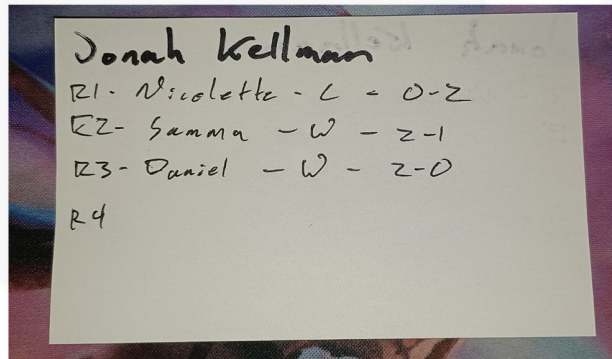 Jonah Kellman
R1 - Nicolette - L - 0-2
R2 - Samma - W - 2-1
R3 - Daniel - W - 2-0
R4